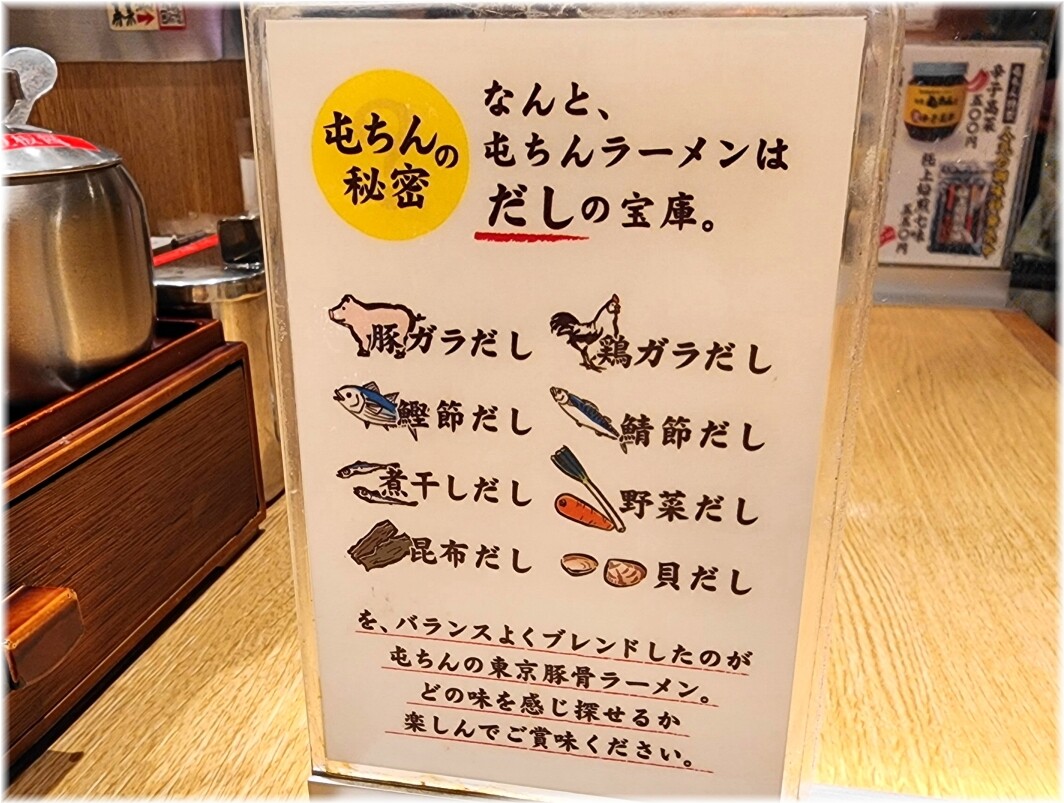 屯ちんの
秘密
なんと、
屯ちんラーメンは
だしの宝庫。
豚ガラだし
鶏ガラだし
鰹節だし
鯖節だし
煮干しだし
野菜だし
昆布だし
貝だし
を、バランスよくブレンドしたのが
屯ちんの東京豚骨ラーメン。
どの味を感じ探せるか
楽しんでご賞味ください。
辛子高菜
五〇〇円
五五〇円